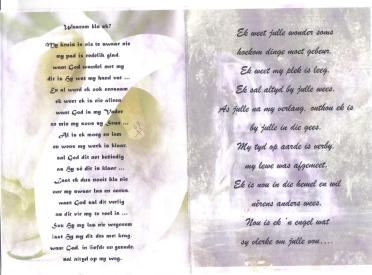 Waarom kla ek?
My kruis is nie te swaar nie
my pad is redelik glad.
want God wandel met my
dit is Hy wat my hand vat ...
En al word ek ook eensaam
ek weet ek is nie alleen
want God is my Vader
en met my soos sy Seun ...
Al is ek moeg en lam
en wens my werk is klaar.
sal God dit ant
en Hy sê dit is klaar ...
Laat ek dus nooit kla nie
oor my swaar
want God sal dit verlig
en dit vir my te veel is ...
Sou Hy my las nie wegneem
laat Hy my dit dra met krag.
want God. in liefde en genade.
sal altyd op my wag.
Ek weet julle wonder soms
hoekom dinge moet gebeur.
Ek weet my plek is leeg,
Ek sal altyd by julle wees.
As julle na my verlang, onthou ek is
by julle in die gees.
My tyd op aarde is verby,
my lewe was afgemeet.
Ek is nou in die hemel en wil
nêrens anders wees.
Nou is ek 'n engel wat
sy vlerke om julle vou....